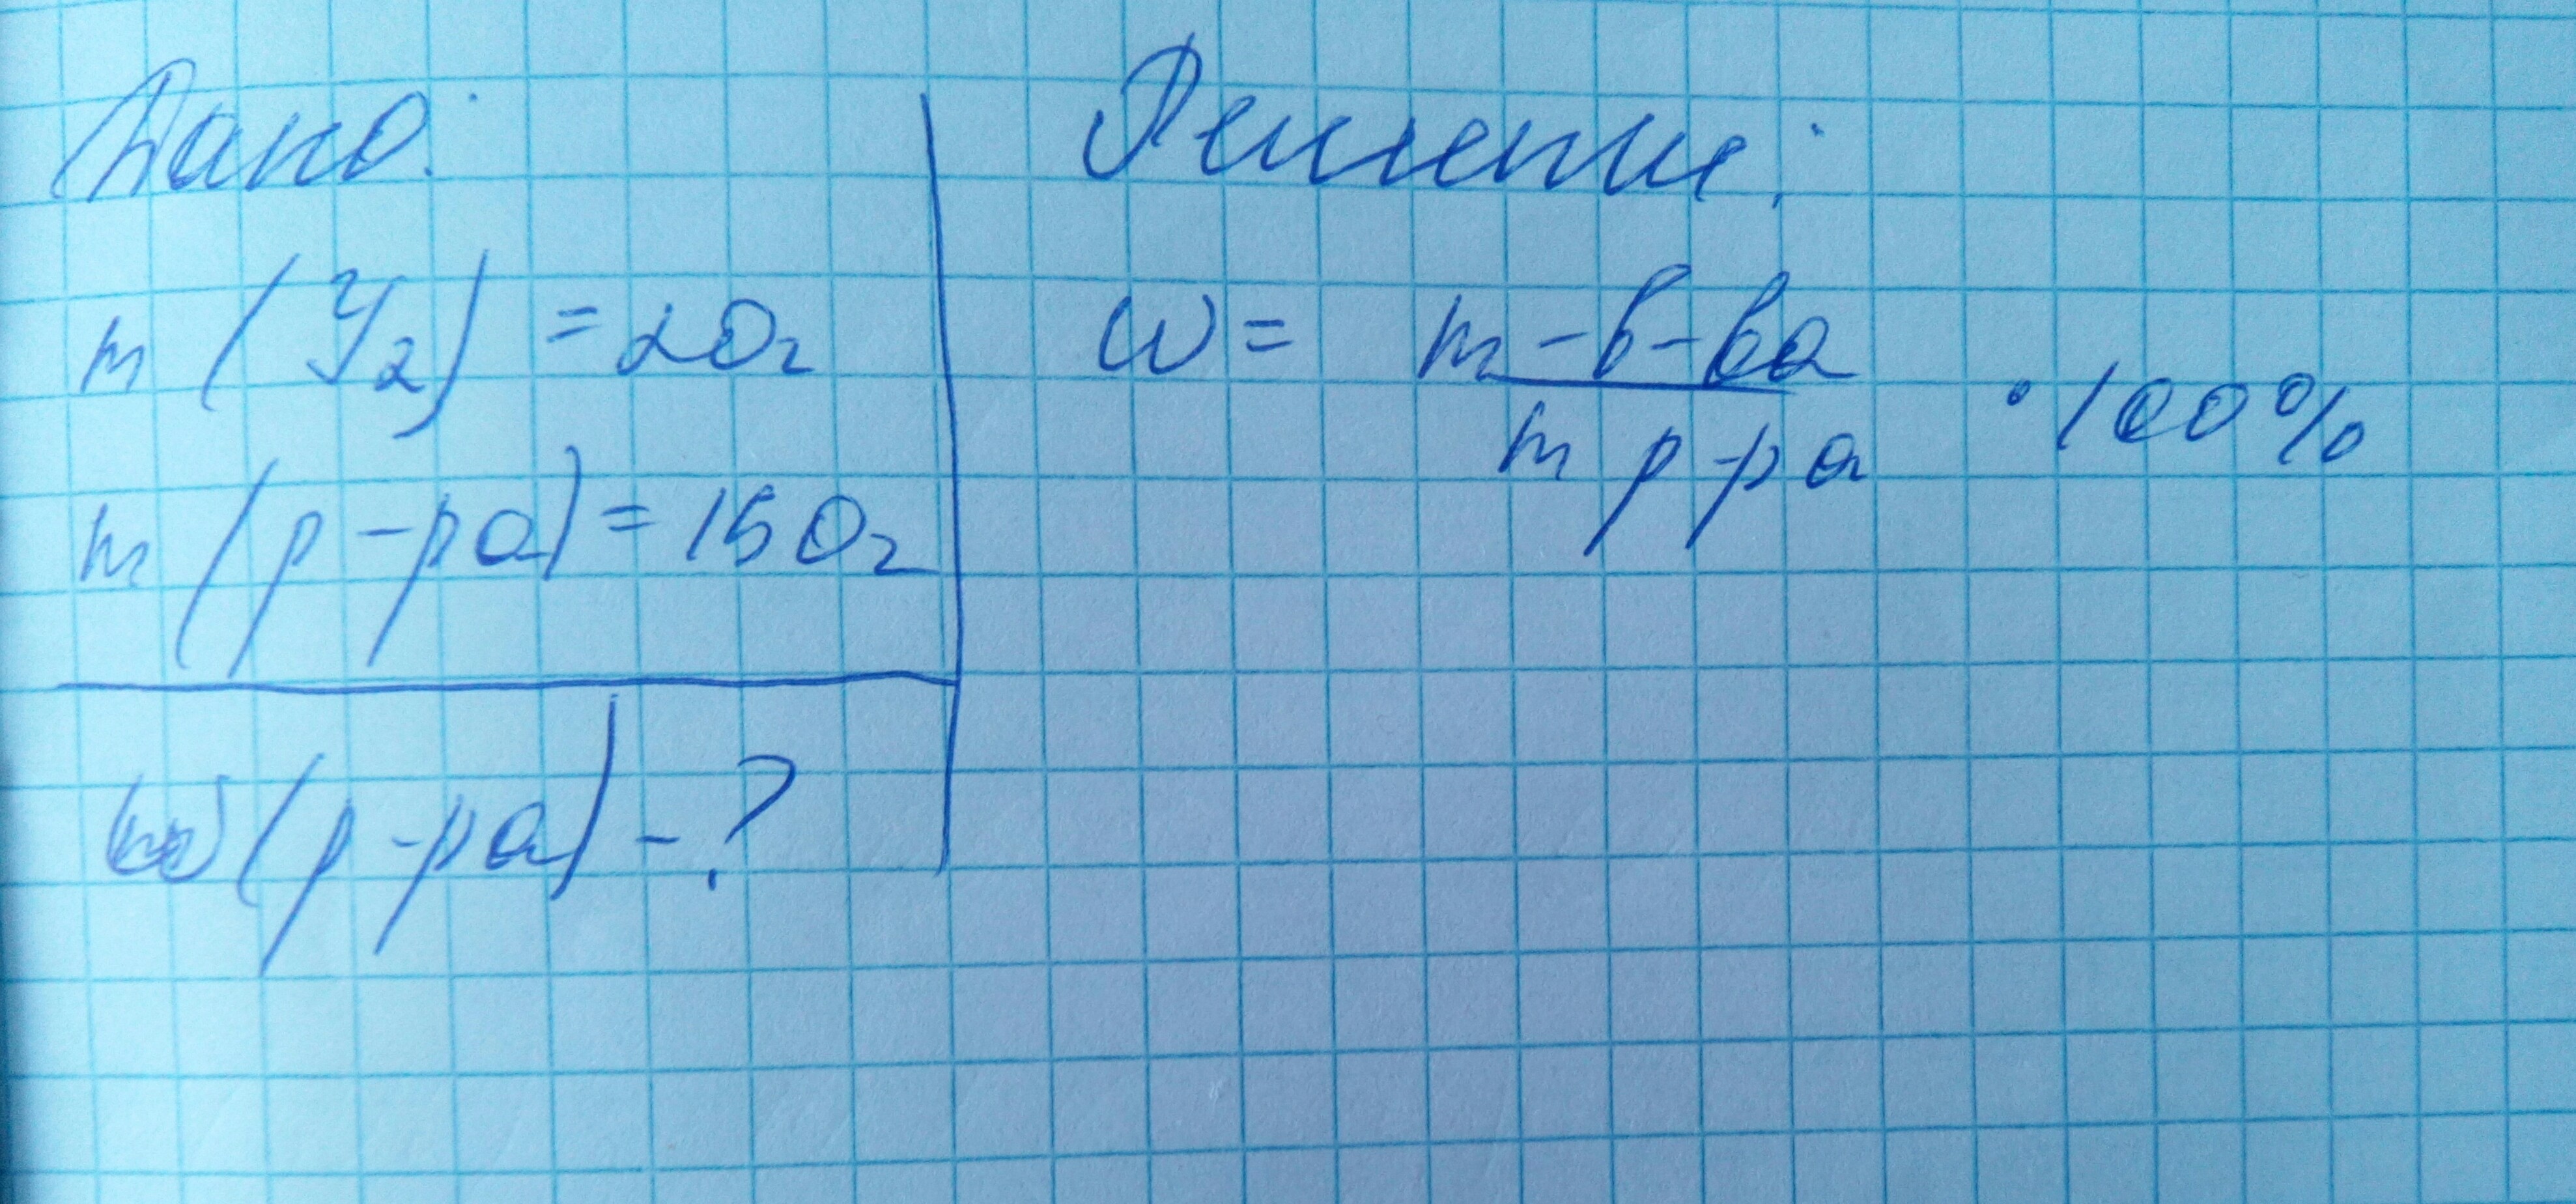 Дано:
m (У2) = 20г
m (р-ра) = 150г
ω (р-ра) - ?
Решение:
ω = m-в-ва / m р-ра · 100%